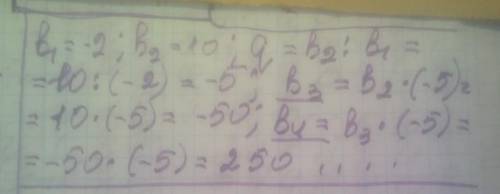 b₁ = -2 ; b₂ = 10 ; q = b₂ : b₁ =
= 10 : (-2) = -5 ; b₃ = b₂ · (-5) =
= 10 · (-5) = -50 ; b₄ = b₃ · (-5) =
= -50 · (-5) = 250 . . . .